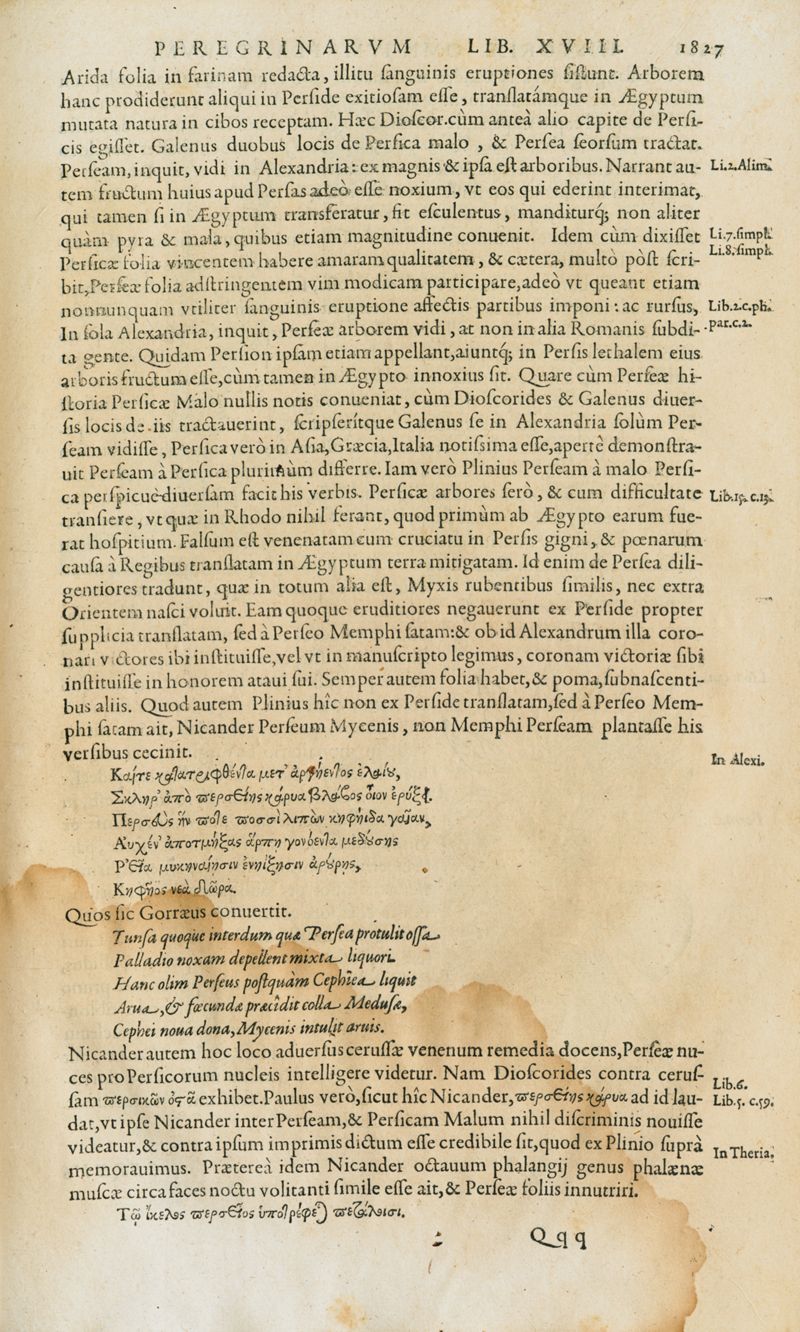 PEREGRINARVM LIB. XVIII. 1827
Arida folia in farinam redacta, illitu sanguinis eruptiones sistunt. Arborem
hanc prodiderunt aliqui in Perside exitiosam esse, translatámque in Ægyptum
mutata natura in cibos receptam. Hæc Dioscor. cùm anteà alio capite de Persi-
cis egisset. Galenus duobus locis de Persica malo, & Persea seorsum tractat.
Perseam, inquit, vidi in Alexandria: ex magnis & ipsa est arboribus. Narrant au- Li.2.Alim.
tem fructum huius apud Persas adeò esse noxium, vt eos qui ederint interimat,
qui tamen si in Ægyptum transferatur, fit esculentus, manditurq; non aliter
quàm pyra & mala, quibus etiam magnitudine conuenit. Idem cùm dixisset Li.7.simpl.
Persicæ folia vincentem habere amaram qualitatem, & cætera, multò pòst scri- Li.8.simpl.
bit, Perseæ folia adstringentem vim modicam participare, adeò vt queant etiam
nonnunquam vtiliter sanguinis eruptione affectis partibus imponi: ac rursus, Lib.2.c.ph.
In sola Alexandria, inquit, Perseæ arborem vidi, at non in alia Romanis subdi- par.c.2.
ta gente. Quidam Persion ipsam etiam appellant, aiuntq; in Persis lethalem eius
arboris fructum esse, cùm tamen in Ægypto innoxius sit. Quare cùm Perseæ hi-
storia Persicæ Malo nullis notis conueniat, cùm Dioscorides & Galenus diuer-
sis locis de iis tractauerint, scripserítque Galenus se in Alexandria solùm Per-
seam vidisse, Persica verò in Asia, Græcia, Italia notissima esse, apertè demonstra-
uit Perseam à Persica plurimùm differre. Iam verò Plinius Perseam à malo Persi-
ca perspicuè diuersam facit his verbis. Persicæ arbores serò, & cum difficultate Lib.15.c.13.
transiere, vt quæ in Rhodo nihil ferant, quod primùm ab Ægypto earum fue-
rat hospitium. Falsum est venenatam cum cruciatu in Persis gigni, & pœnarum
causa à Regibus translatam in Ægyptum terra mitigatam. Id enim de Persea dili-
gentiores tradunt, quæ in totum alia est, Myxis rubentibus similis, nec extra
Orientem nasci voluit. Eam quoque eruditiores negauerunt ex Perside propter
supplicia translatam, sed à Perseo Memphi satam: & ob id Alexandrum illa coro-
nari victores ibi instituisse, vel vt in manuscripto legimus, coronam victoriæ sibi
instituisse in honorem ataui sui. Semper autem folia habet, & poma, subnascenti-
bus aliis. Quod autem Plinius hîc non ex Perside translatam, sed à Perseo Mem-
phi satam ait, Nicander Perseum Mycenis, non Memphi Perseam plantasse his
versibus cecinit. In Alexi.
Καίτε
Σκληρ' ἀπὸ περσείης κάρυα βλάβος οἷον ἐρύξει.
Περσεὺς ἥν ποτε ποσσὶ λιπὼν κηφηίδα γαῖαν,
Αὐχέν' ἀποτμήξας ἅρπῃ γονόεντα μεδούσης
Ῥεῖα μυκηναίῃσιν ἐνηέξησιν ἀρούρῃς,
Κηφῆος νέα δῶρα.
Quos sic Gorræus conuertit.
Tunsa quoque interdum quæ Persea protulit ossa
Palladio noxam depellent mixta liquori.
Hanc olim Perseus postquàm Cephiea liquit
Arua, & fœcunda præcidit colla Medusæ,
Cephei noua dona, Mycenis intulit aruis.
Nicander autem hoc loco aduersus cerussæ venenum remedia docens, Perseæ nu-
ces pro Persicorum nucleis intelligere videtur. Nam Dioscorides contra cerus- Lib.6.
sam περσικῶν ὀστᾶ exhibet. Paulus verò, sicut hîc Nicander, περσείης κάρυα ad id lau- Lib.5. c.59.
dat, vt ipse Nicander inter Perseam, & Persicam Malum nihil discriminis nouisse
videatur, & contra ipsum imprimis dictum esse credibile sit, quod ex Plinio suprà
memorauimus. Prætereà idem Nicander octauum phalangij genus phalænæ In Theria.
muscæ circa faces noctu volitanti simile esse ait, & Perseæ foliis innutriri.
Τῷ ἴκελος περσεῖος ὑποτρέφεται πετάλοισι.
Qqq